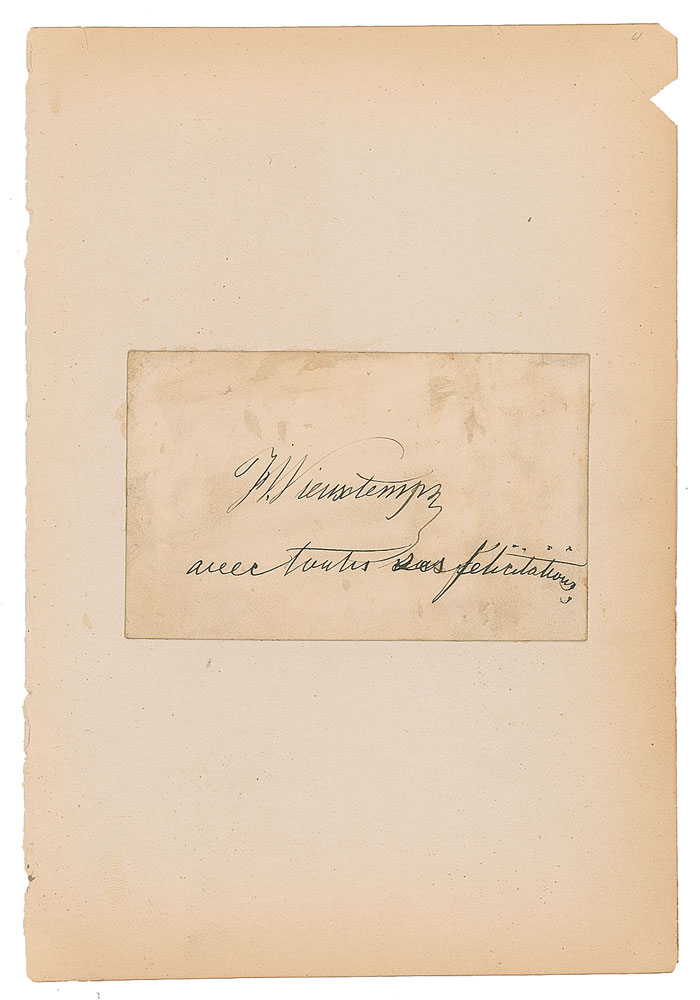 4
H. Vieuxtemps
avec toutes ses félicitations